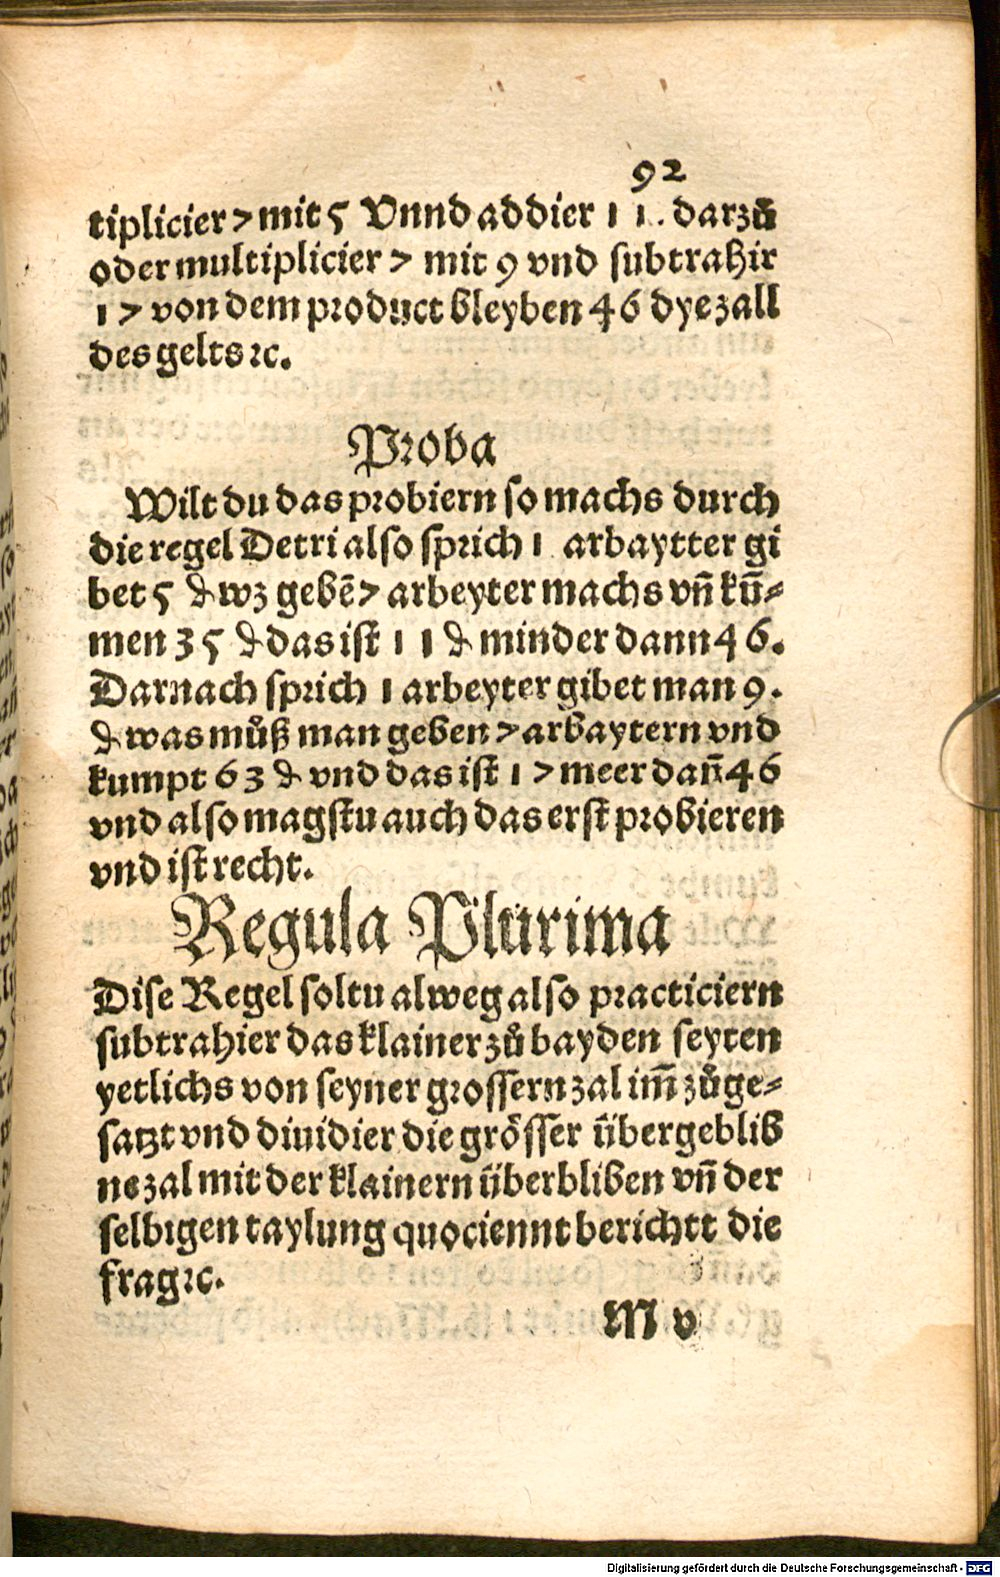 92
tiplicier 7 mit 5 Vnnd addier 1 1. darzů
oder multiplicier 7 mit 9 vnd subtrahir
17 von dem product bleyben 46 dye zall
des gelts ꝛc.
Proba
Wilt du das probiern so machs durch
die regel Detri also sprich 1 arbaytter gi
bet 5 ₰ wz gebẽ 7 arbeyter machs vñ kũ⸗
men 35 ₰ das ist 11 ₰ minder dann 46.
Darnach sprich 1 arbeyter gibet man 9.
₰ was můß man geben 7 arbaytern vnd
kumpt 63 ₰ vnd das ist 17 meer dañ 46
vnd also magstu auch das erst probieren
vnd ist recht.
Regula Plurima
Dise Regel soltu alweg also practiciern
subtrahier das klainer zů bayden seyten
yetlichs von seyner grossern zal im̃ zůge⸗
satzt vnd diuidier die grösser übergeblib
ne zal mit der klainern überbliben vñ der
selbigen taylung quociennt berichtt die
frag ꝛc.
M v
Digitalisierung gefördert durch die Deutsche Forschungsgemeinschaft - DFG